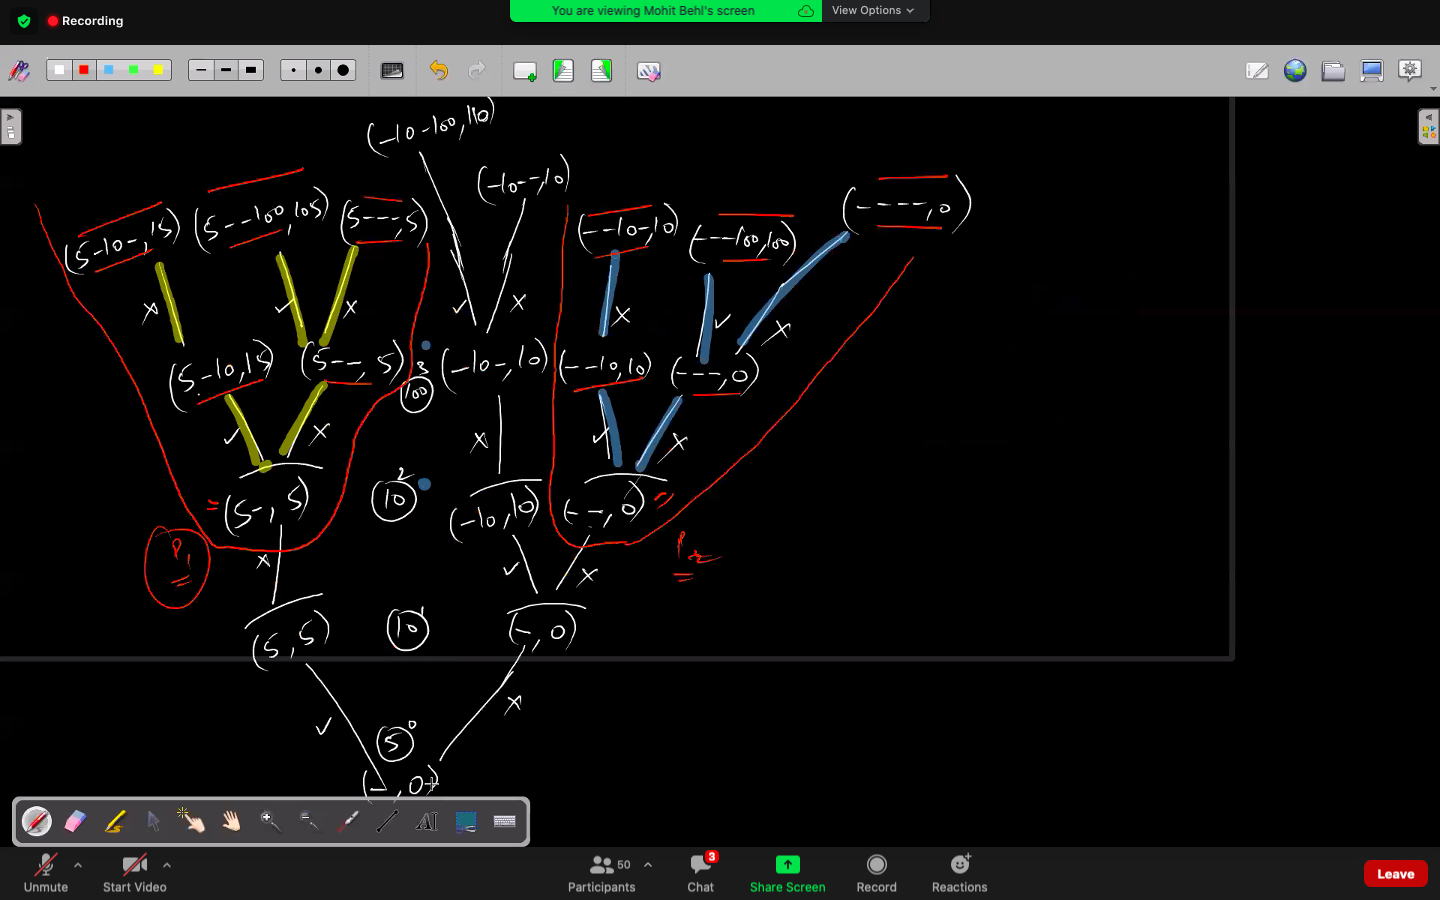 Recording
You are viewing Mohit Behl's screen
View Options
(-10-100,110)
(-10--,10)
(5-10-,15)
(5--100,105)
(5---,5)
(--10-,10)
(---100,100)
(----,0)
x
✓
x
✓
x
x
✓
x
(5-10,15)
(5--,5)
3
100
(-10-,10)
(--10,10)
(---,0)
✓
x
x
✓
x
=
(5-,5)
10
2
(-10,10)
(--,0)
=
P1
x
✓
x
P2
(5,5)
10
1
(-,0)
✓
x
5
0
(-,0)
AI
Unmute
Start Video
Participants
50
Chat
3
Share Screen
Record
Reactions
Leave